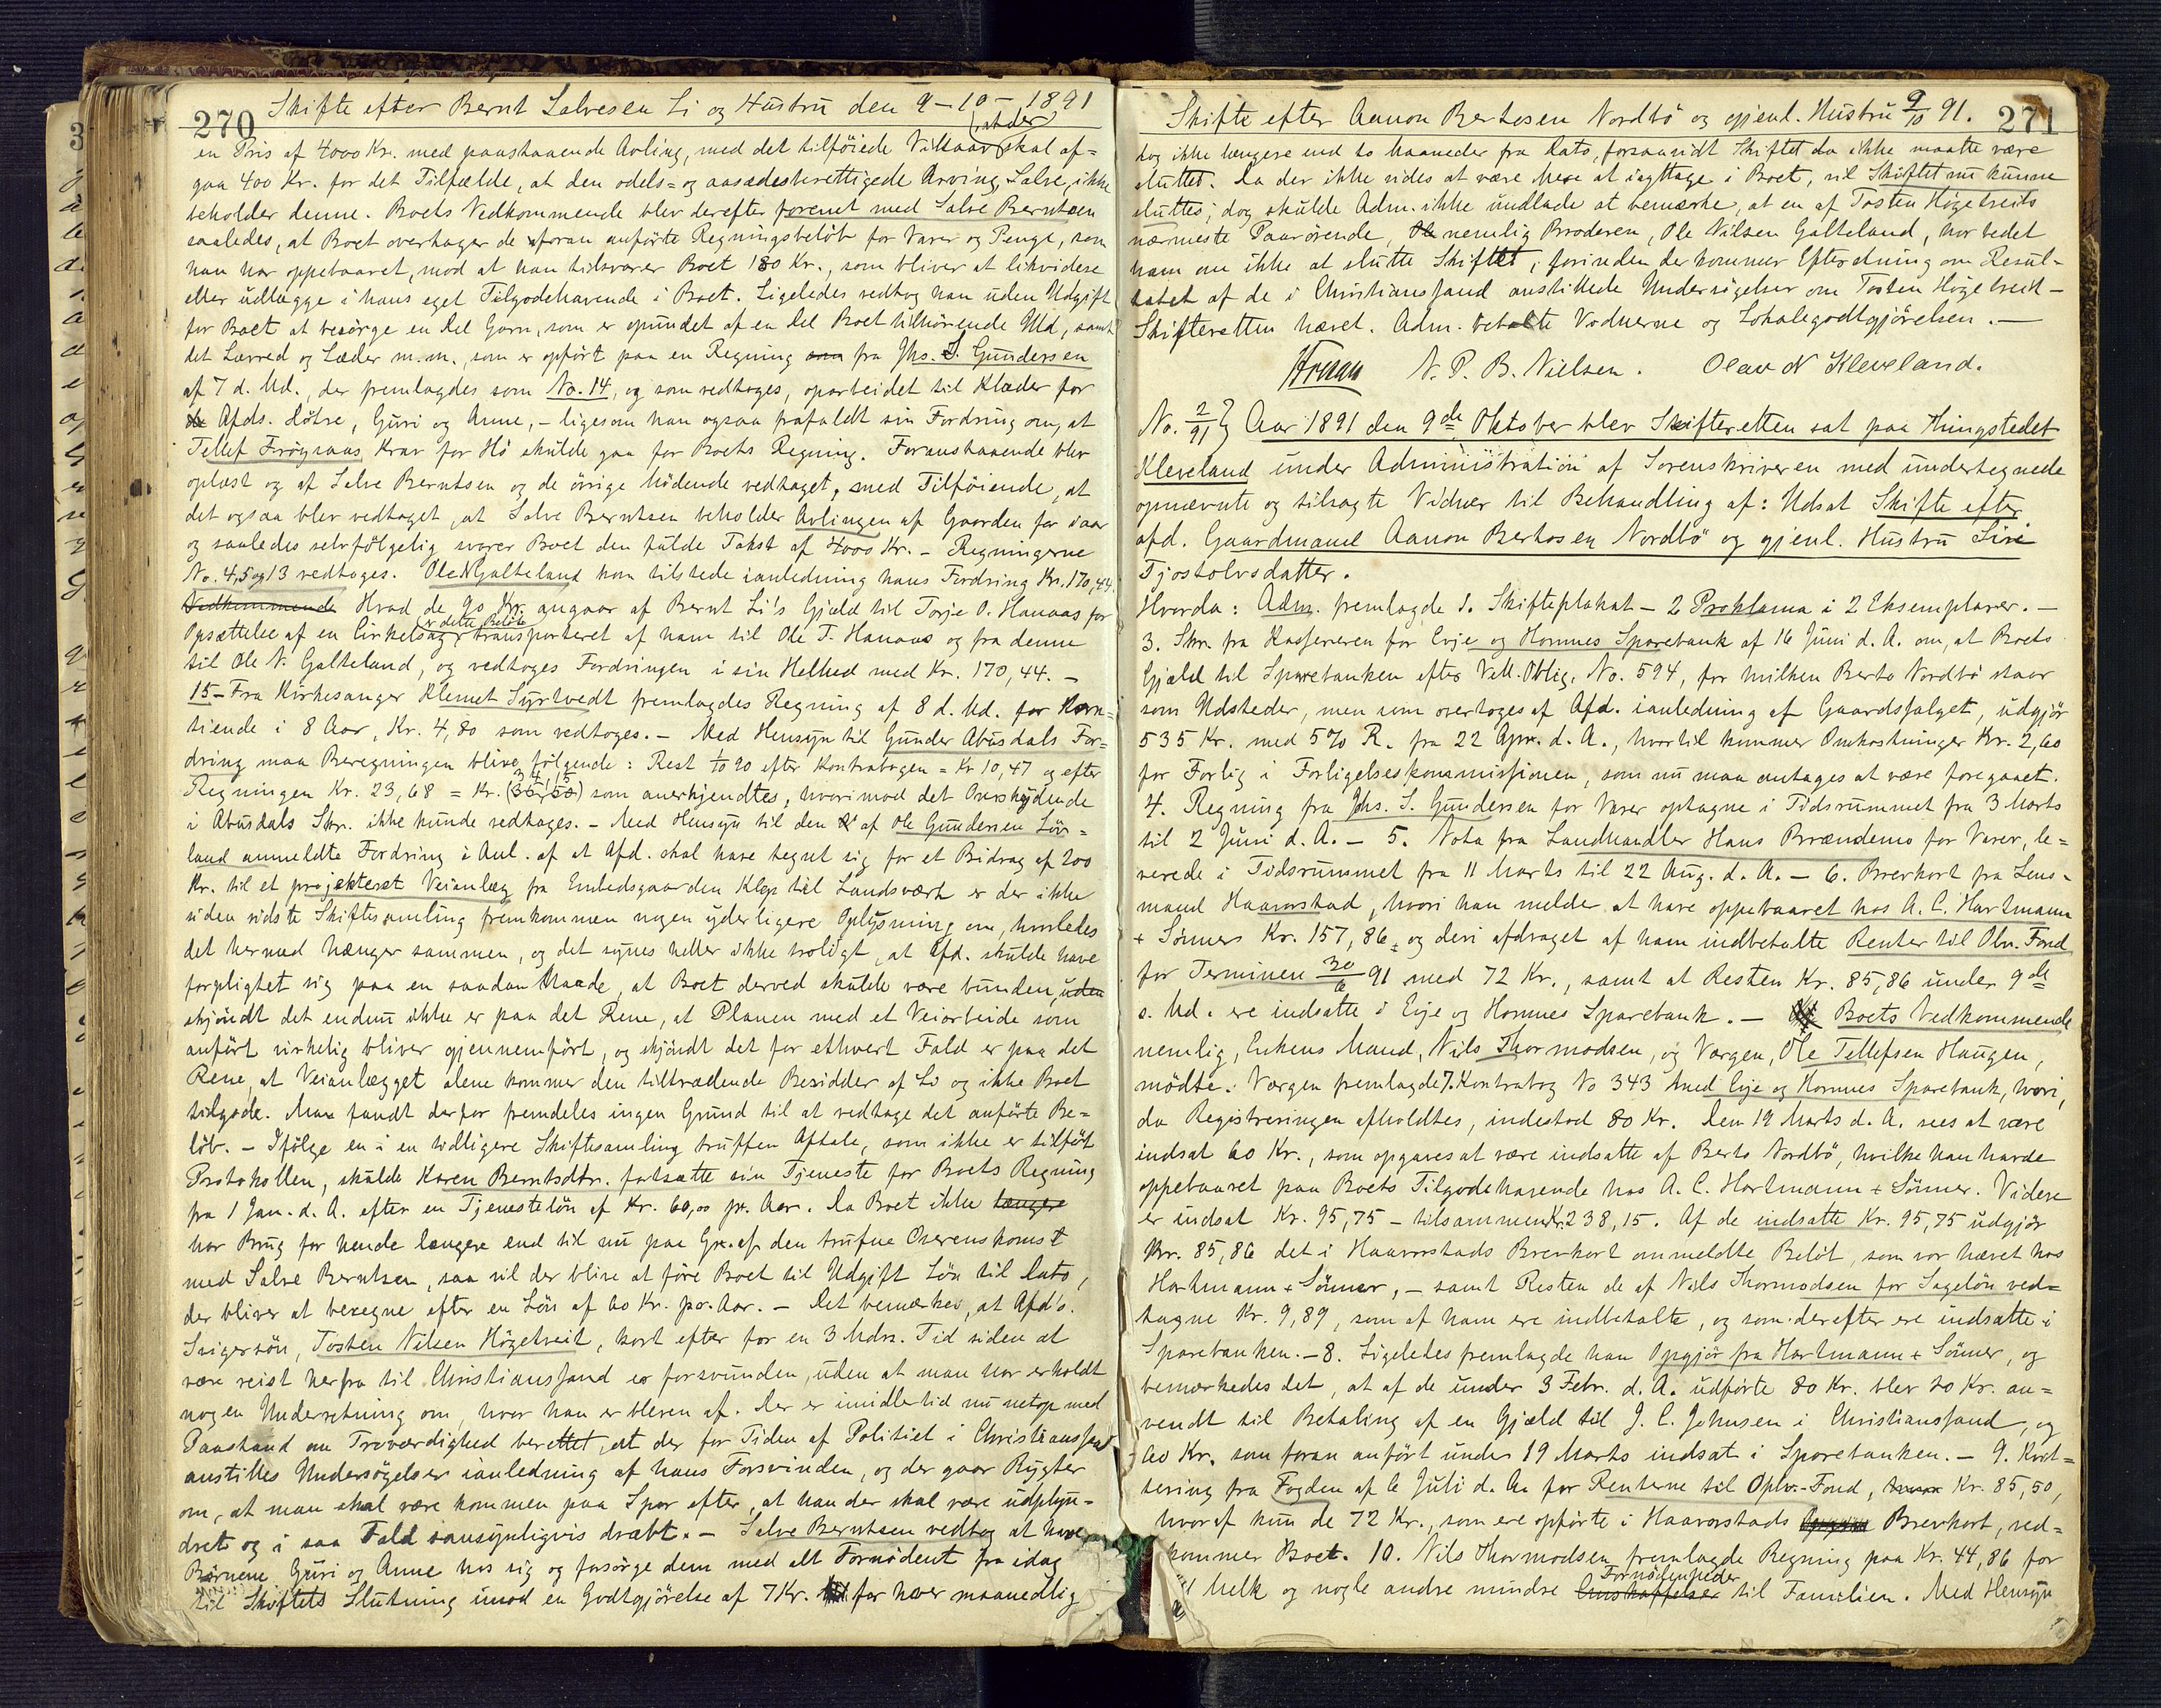 270 Skifte efter Bernt Salvesen Li og Hustru den 9-10-1891
(, at der)
en Pris af 4000 Kr. med paastaaende Avling, med det tilföiede Vilkaar skal af=
gaa 400 Kr. for det Tilfælde, at den odels= og aasædesberettigede Arving, Salve, ikke
beholder denne. Boets Vedkommende blev derefter forenet med Salve Berntsen
saaledes, at Boet overtager de foran anförte Regningsbelöb for Varer og Penge, som
han har oppebaaret, mod at han tilsvarer Boet 180 Kr., som bliver at likvidere
eller udlægge i hans eget Tilgodehavende i Boet. Ligeledes vedtog han uden Udgift
for Boet at besörge en Del Garn, som er spundet af en Del Boet tilhörende Uld, samt
det Lærred og Læder m.m., som er opfört paa en Regning som fra Jhs. S. Gundersen
af 7 d. Md., der fremlagdes som No. 14, og som vedtoges, oparbeidet til Klæder for
Afds. Döttre, Guri og Anne, - ligesom han ogsaa frafaldt sin Fordring om, at
Tellef Fröysaas Krav for Hö skulde gaa for Boets Regning. Foranstaaende blev
oplæst og af Salve Berntsen og de övrige Mödende vedtaget, med Tilföiende, at
det ogsaa blev vedtaget, at Salve Berntsen beholder Avlingen af Gaarden for iaar
og saaledes selvfölgelig svarer Boet den fulde Takst af 4000 Kr. - Regningerne
No. 4, 5 og 13 vedtoges. Ole N Galteland kom tilstede ianledning hans Fordring Kr. 170,44.
Vedkommende Hvad de 90 Kr. angaar af Bernt Li's Gjæld til Torje O. Hanaas for
(er dette Belöb
Opsættelse af en Cirkelsag, transporteret af ham til Ole T. Hanaas og fra denne
til Ole N. Galteland, og vedtoges Fordringen i sin Helhed med Kr. 170,44. -
15 - Fra Kirkesanger Klemet Syrtvedt fremlagdes Regning af 8 d. Md. for Korn=
tiende i 8 Aar, Kr. 4,80 som vedtoges. - Med Hensyn til Gunder Abusdals For=
dring maa Beregningen blive fölgende: Rest 1/10 90 efter Kontrabogen = Kr 10,47 og efter
34,15
Regningen Kr. 23,68 = Kr. (36,50) som anerkjendtes, hvorimod det Overskydende
i Abusdals Skr. ikke kunde vedtages. - Med Hensyn til den af Ole Gundersen Löv=
land anmeldte Fordring i Anl. af at Afd. skal have tegnet sig for et Bidrag af 200
Kr. til et projekteret Veianlæg fra Embedsgaarden Klep til Landsværk er der ikke
siden sidste Skiftesamling fremkommen nogen yderligere Oplysning om, hvorledes
det hermed hænger sammen, og det synes heller ikke troligt, at Afd. skulde have
forpligtet sig paa en saadan Maade, at Boet derved skulde være bunden, uden
skjöndt det endnu ikke er paa det Rene, at Planen med et Veiarbeide som
anfört virkelig bliver gjennemfört, og skjöndt det for ethvert Fald er paa det
Rene, at Veianlægget alene kommer den tiltrædende Besidder af Li og ikke Boet
tilgode. Man fandt derfor fremdeles ingen Grund til at vedtage det anförte Be=
löb. - Ifölge en i en tidligere Skiftesamling truffen Aftale, som ikke er tilfört
Protokollen, skulde Karen Berntsdtr. fortsætte sin Tjeneste for Boets Regning
fra 1 Jan. d. A. efter en Tjenestelön af Kr. 60,00 pr. Aar. Da Boet ikke længere
har Brug for hende længere end til nu paa Gr. af den trufne Overenskomst
med Salve Berntsen, saa vil der blive at före Boet til Udgift Lön til Dato,
der bliver at beregne efter en Lön af 60 Kr. pr. Aar. - Det bemærkes, at Afd's.
Svigersön, Tosten Nilsen Högetveit, kort efter for en 3 Mdrs. Tid siden at
være reist herfra til Christianssand er forsvunden, uden at man har erholdt
nogen Underretning om, hvor han er bleven af. Der er imidlertid nu netop med
Paastand om Troværdighed berettet, at der for Tiden af Politiet i Christianssand
anstilles Undersögelser ianledning af hans Forsvinden, og der gaar Rygter
om, at man skal være kommen paa Spor efter, at han der skal være udplyn=
dret og i saa Fald sansynligvis dræbt. - Salve Berntsen vedtog at have
Börnene Guri og Anne hos sig og forsörge dem med alt Fornödent fra idag
til Skiftets Slutning imod en Godtgjörelse af 7 Kr. for hver maanedlig
Skifte efter Aanon Bertosen Nordbö og gjenl. Hustru 9/10 91. 271
dog ikke længere end to Maaneder fra Dato, forsaavidt Skiftet da ikke maatte være
sluttet. Da der ikke vides at være Mere at iagttage i Boet, vil Skiftet nu kunne
sluttes; dog skulde Adm. ikke undlade at bemærke, at en af Tosten Högetveits
nærmeste Paarörende, nemlig Broderen, Ole Nilsen Galteland, har bedet
ham om ikke at slutte Skiftet, forinden der kommer Efterretning om Resul=
tatet af de i Christianssand anstillede Undersögelser om Tosten Högetveit -
Skifteretten hævet. Adm. betalte Vidnerne og Lokalegodtgjörelsen. -
N. P. B. Nielsen. Olav N Kleveland.
No. 2/91 } Aar 1891 den 9de Oktober blev Skifteretten sat paa Thingstedet
Kleveland under Administration af Sorenskriveren med undertegnede
opnævnte og tilsagte Vidner til Behandling af: Udsat Skifte efter
afd. Gaardmand Aanon Bertosen Nordbö og gjenl. Hustru Siri
Tjostolvsdatter.
Hvorda: Adm. fremlagde 1. Skifteplakat - 2 Proklama i 2 Eksemplarer. -
3. Skr. fra Kassereren for Evje og Hornnes Sparebank af 16 Juni d. A. om, at Boets
Gjæld til Sparebanken efter Vexl. Oblig. No. 594, for hvilken Berto Nordbö staar
som Udsteder, men som overtoges af Afd. ianledning af Gaardsalget, udgjör
535 Kr. med 5% R. fra 22 Apr. d. A., hvortil kommer Omkostninger Kr. 2,60
for Forlig i Forligelseskommissionen, som nu maa antages at være foregaaet.
4. Regning fra Jhs. S. Gundersen for Varer optagne i Tidsrummet fra 3 Marts
til 2 Juni d. A. - 5. Nota fra Landhandler Hans Brændemo for Varer, le=
verede i Tidsrummet fra 11 Marts til 22 Aug. d. A. - 6. Brevkort fra Lens=
mand Haavorstad, hvori han melder at have oppebaaret hos A. C. Hartmann
+ Sönner Kr. 157,86, og deri afdraget af ham indbetalte Renter til Obv. Fond
for Terminen 30/6 91 med 72 Kr., samt at Resten Kr. 85,86 under 9de
s. Md. ere indsatte i Evje og Hornnes Sparebank. - Boets Vedkommende
nemlig, Enkens Mand, Nils Thormodsen, og Værgen, Ole Tellefsen Haugen,
mödte. Værgen fremlagde 7. Kontrabog No 343 med Evje og Hornnes Sparebank, hvori,
da Registreringen afholdtes, indestod 80 Kr. Den 19 Marts d. A. sees at være
indsat 60 Kr., som opgaves at være indsatte af Berto Nordbö, hvilke han havde
oppebaaret paa Boets Tilgodehavende hos A. C. Hartmann + Sönner. Videre
er indsat Kr. 95,75 - tilsammen Kr. 238,15. Af de indsatte Kr. 95,75 udgjör
Kr. 85,86 det i Haavorstads Brevkort anmeldte Belöb, som var hævet hos
Hartmann + Sönner, - samt Resten de af Nils Thormodsen for Sagelön ved=
tagne Kr. 9,89, som af ham ere indbetalte, og som derefter ere indsatte i
Sparebanken. - 8. Ligeledes fremlagde han Opgjör fra Hartmann + Sönner, og
bemærkedes det, at af de under 3 Febr. d. A. udförte 80 Kr. blev 20 Kr. an=
vendt til Betaling af en Gjæld til J. C. Johnsen i Christianssand, og
60 Kr. som foran anfört under 19 Marts indsat i Sparebanken. - 9. Kvit=
tering fra Fogden af 6 Juli d. Aa for Renterne til Oplv.-Fond, Kr. 85,50,
hvoraf kun de 72 Kr., som ere opförte i Haavorstads Brevkort, ved=
kommer Boet. 10. Nils Thormodsen fremlagde Regning paa Kr. 44,86 for
Fornödenheder
Melk og nogle andre mindre Anskaffelser til Familien. Med Hensyn